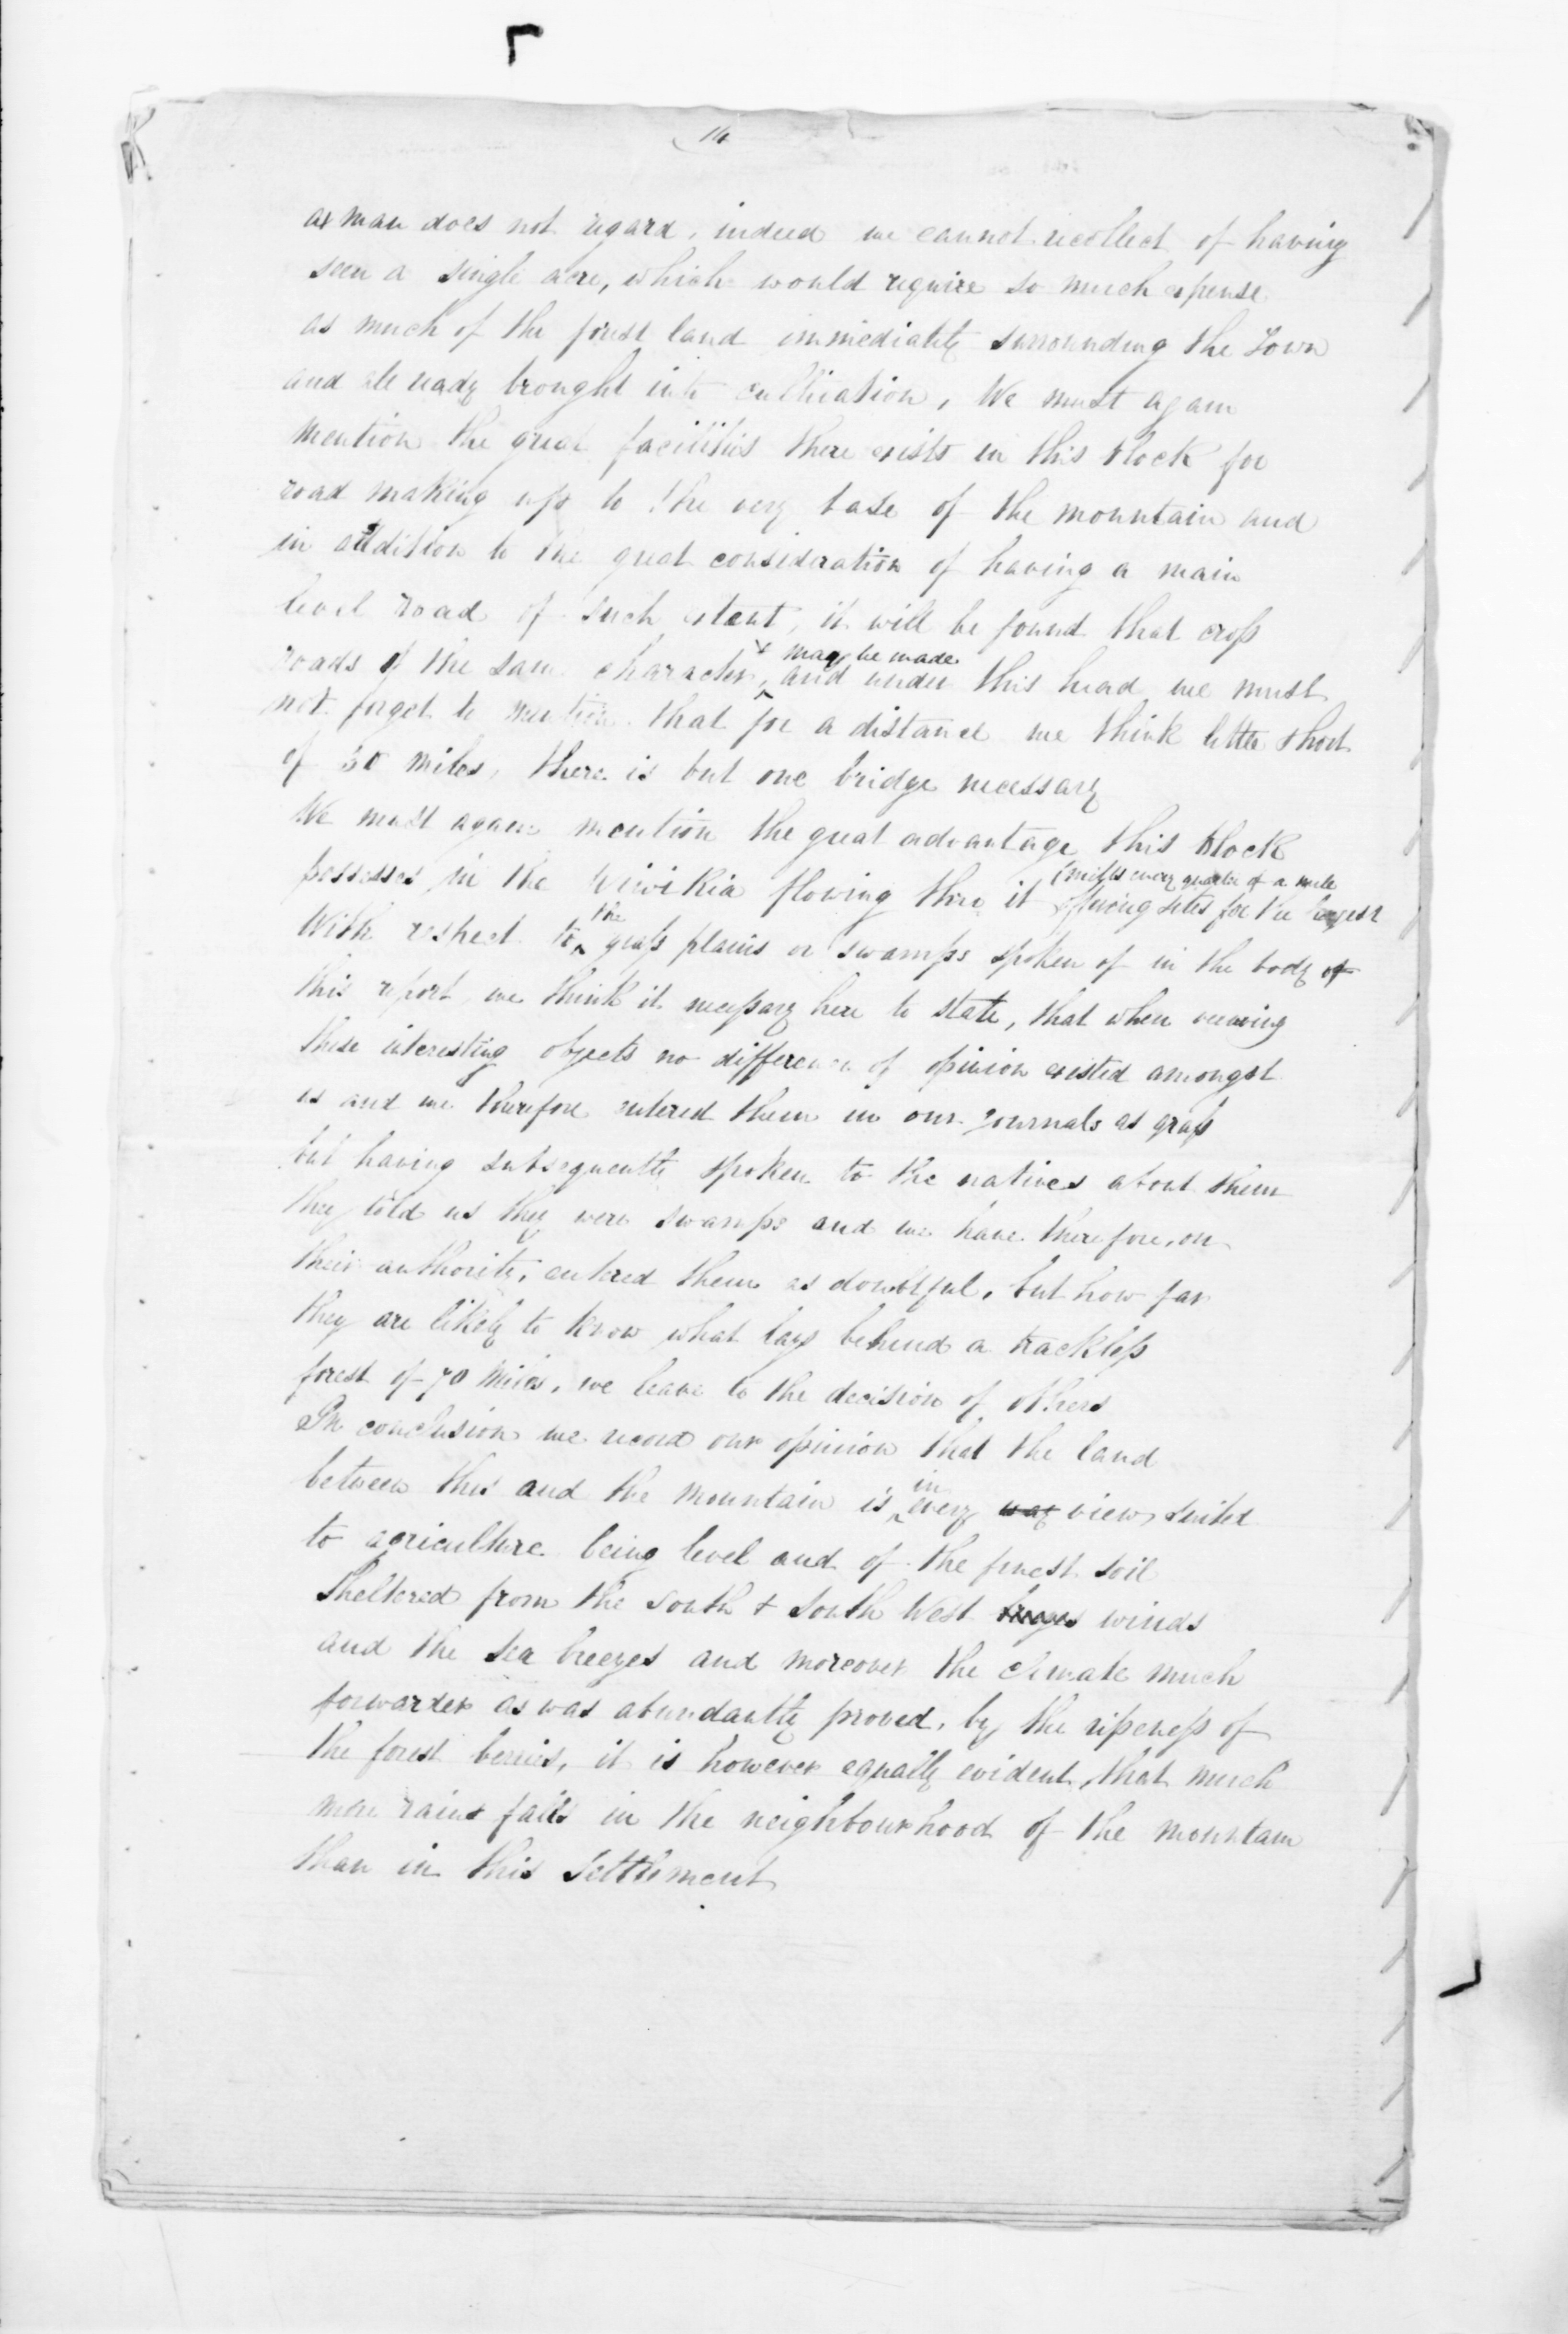 14
ax man does not regard, indeed we cannot recollect of having
seen a single acre, which would require so much expense
as much of the forest land immediately surrounding the Town
and already brought into cultivation, We must again
mention the great facilities there exists in this block for
road making up to the very base of the mountain and
in addition to the great consideration of having a main
level road of such extent, it will be found that cross
may be made
roads of the same character, and under this head we must
not forget to mention that for a distance we think little short
of 30 miles, there is but one bridge necessary
We must again mention the great advantage this block
(mills every quarter of a mile
possesses in the Wiwikia flowing thro it offering sites for the largest
the
With respect to grass plains or swamps spoken of in the body of
this report we think it necessary here to state, that when viewing
these interesting objects no difference of opinion existed amongst
us and we therefore entered them in our Journals as grass
but having subsequently spoken to the natives about them
they told us they were swamps and we have therefore, on
their authority, entered them as doubtful, but how far
they are likely to know what lays behind a trackless
forest of 70 Miles, we leave to the decision of others
In conclusion we record our opinion that the land
in
between this and the mountain is every way view, suited
to agriculture being level and of the finest soil
Sheltered from the South & South West winds
and the sea breezes and moreover the climate much
forwarder as was abundantly proved, by the ripeness of
the forest berries, it is however equally evident, that much
more rains falls in the neighbourhood of the mountain
than in this Settlement